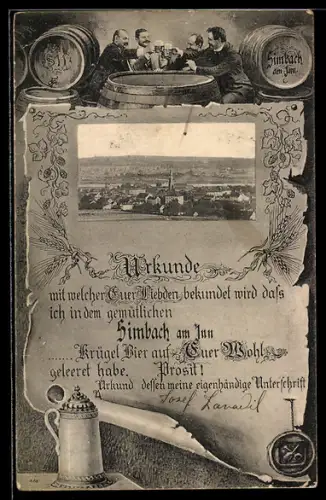 Simbach
am Inn
Urkunde
mit welcher Euer Liebden bekundet wird daß
ich in dem gemütlichen
Simbach am Inn
....... Krügel Bier auf Euer Wohl
geleeret habe. Prosit!
Urkund dessen meine eigenhändige Unterschrift
Josef